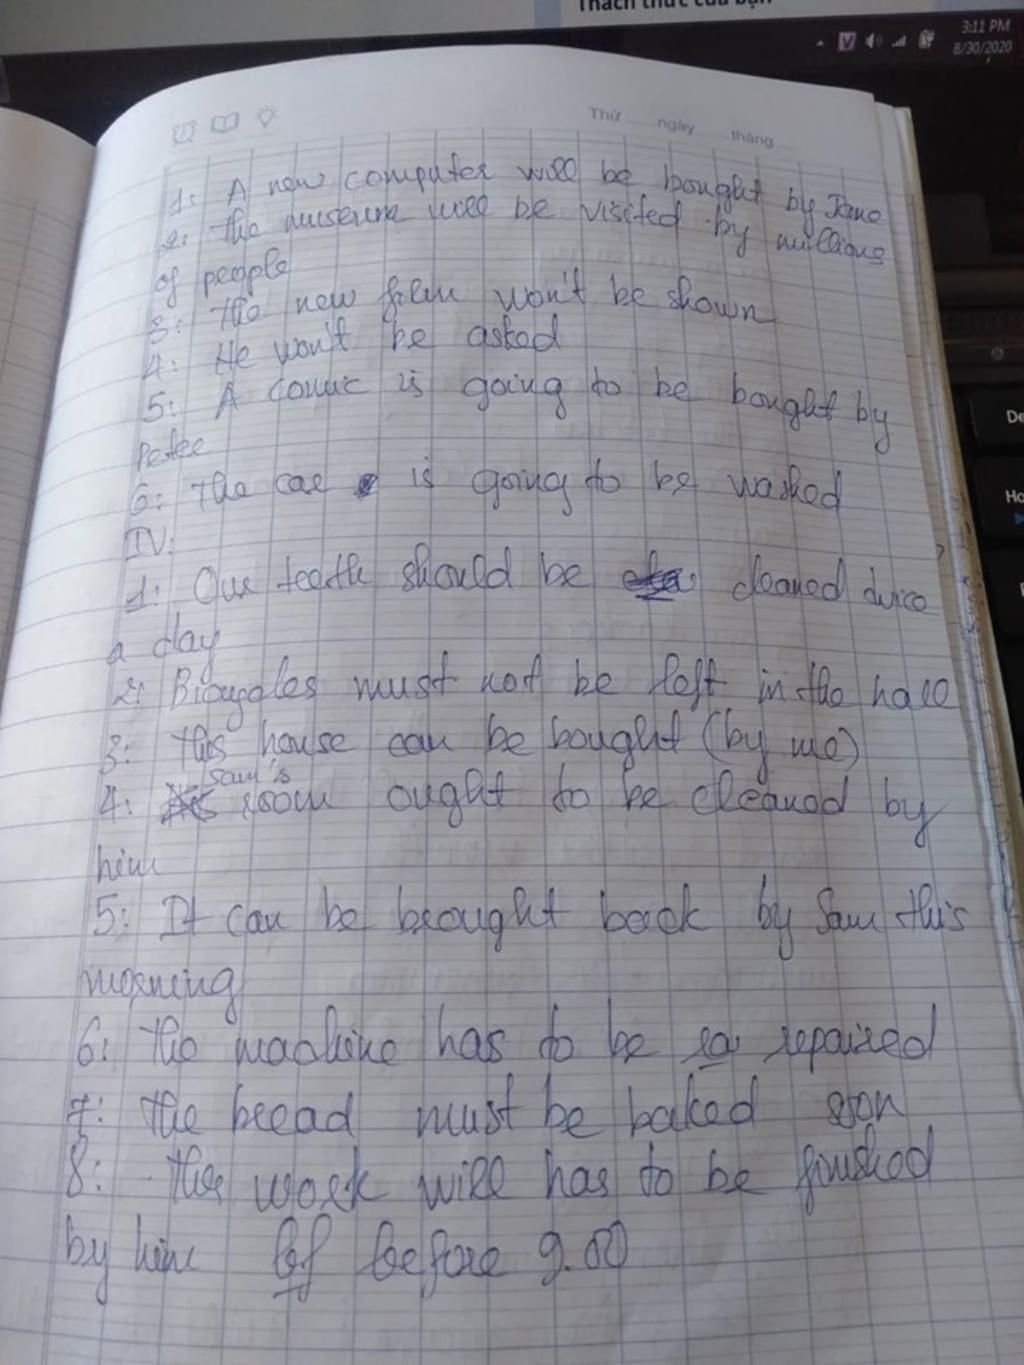 Thách thức của bạn
3:11 PM
8/30/2020
Thứ ngày tháng
1: A new computer will be bought by Jane
2: The museum will be visited by millions
of people
3: The new film won't be shown
4: He won't be asked
5: A comic is going to be bought by
Peter
6: The car is going to be washed
IV:
1: Our teeth should be cleaned twice
a day
2: Bicycles must not be left in the hall
3: This house can be bought (by me)
Sam's
4: room ought to be cleaned by
him
5: It can be brought back by Sam this
morning
6: The machine has to be repaired
7: The bread must be baked soon
8: This work will has to be finished
by him before 9.00
De
Ho